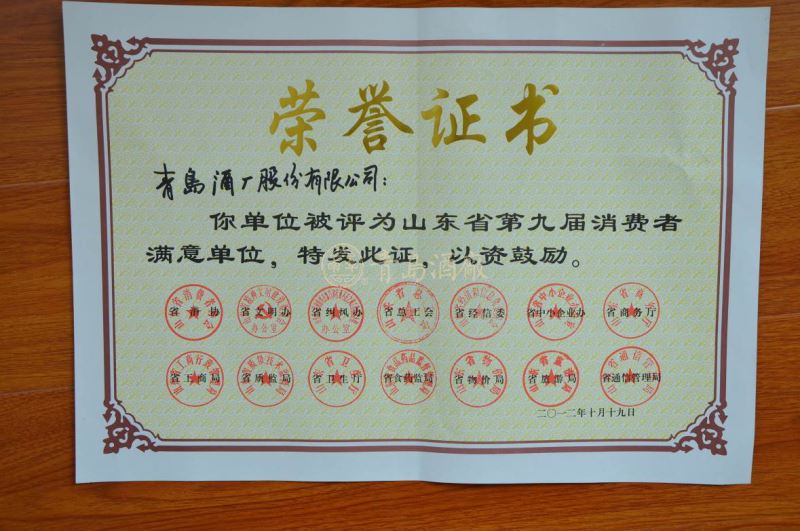 荣誉证书
青岛酒厂股份有限公司：
你单位被评为山东省第九届消费者
满意单位，特发此证，以资鼓励。
青島酒廠
省消协 省文明办 省纠风办 省总工会 省经信委 省中小企业办 省商务厅
省工商局 省质监局 省卫生厅 省食药监局 省物价局 省旅游局 省通信管理局
二〇一二年十月十九日